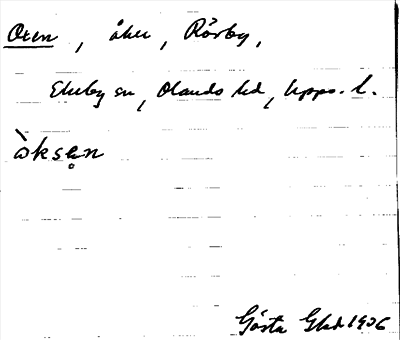 Oxen, åker, Rörby,
Ekeby sn, Olands hd, Upps. l.
òksen
Gösta Glad 1936